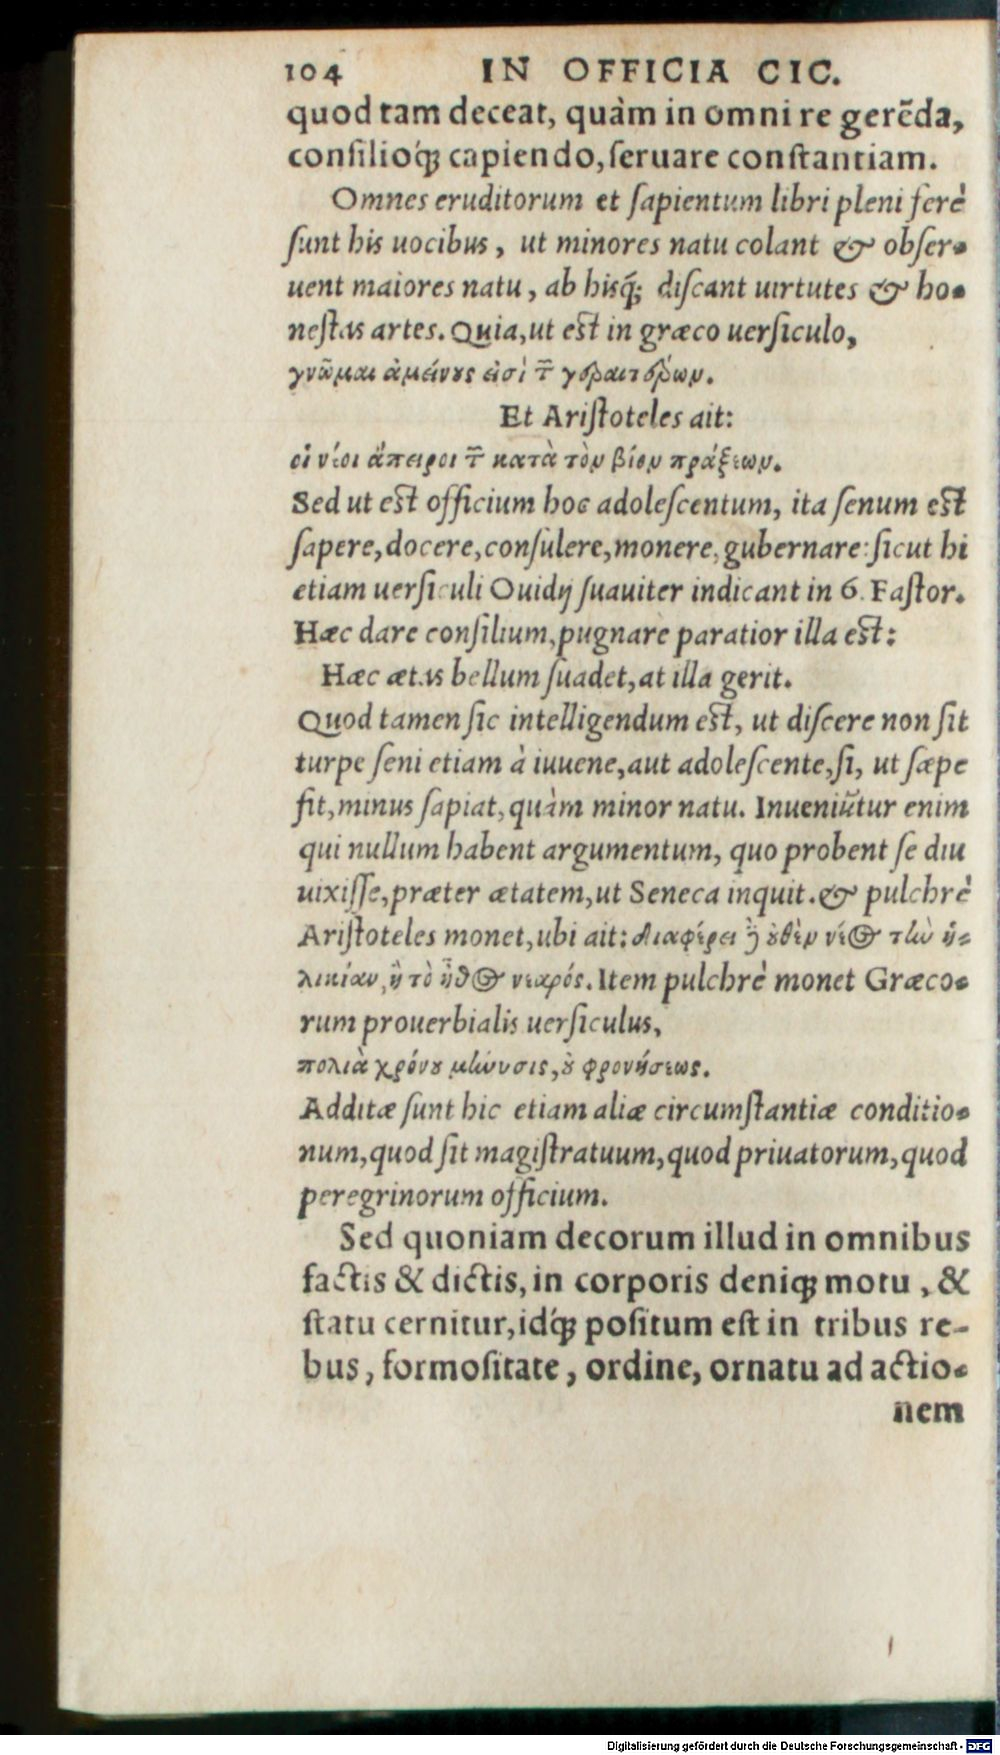 104 IN OFFICIA CIC.
quod tam deceat, quàm in omni re gerẽda,
consilioq́; capiendo, seruare constantiam.
Omnes eruditorum et sapientum libri pleni ferè
sunt his uocibus, ut minores natu colant & obser-
uent maiores natu, ab hisq́; discant uirtutes & ho-
nestas artes. Quia, ut est in græco uersiculo,
γνῶμαι ἀμείνους εἰσὶ τ῀ γεραιτέρων.
Et Aristoteles ait:
οἱ νέοι ἄπειροι τ῀ κατὰ τὸν βίον πράξεων.
Sed ut est officium hoc adolescentum, ita senum est
sapere, docere, consulere, monere, gubernare: sicut hi
etiam uersiculi Ouidij suauiter indicant in 6. Fastor.
Hæc dare consilium, pugnare paratior illa est:
Hæc ætas bellum suadet, at illa gerit.
Quod tamen sic intelligendum est, ut discere non sit
turpe seni etiam à iuuene, aut adolescente, si, ut sæpe
fit, minus sapiat, quàm minor natu. Inueniũtur enim
qui nullum habent argumentum, quo probent se diu
uixisse, præter ætatem, ut Seneca inquit. & pulchrè
Aristoteles monet, ubi ait: διαφέρει ἢ οὐθὲν νέος τὴν ἡ-
λικίαν, ἢ τὸ ἦθος νεαρός. Item pulchrè monet Græco-
rum prouerbialis uersiculus,
πολιὰ χρόνου μήνυσις, οὐ φρονήσεως.
Additæ sunt hic etiam aliæ circumstantiæ conditio-
num, quod sit magistratuum, quod priuatorum, quod
peregrinorum officium.
Sed quoniam decorum illud in omnibus
factis & dictis, in corporis deniq; motu, &
statu cernitur, idq́; positum est in tribus re-
bus, formositate, ordine, ornatu ad actio-
nem
Digitalisierung gefördert durch die Deutsche Forschungsgemeinschaft - DFG